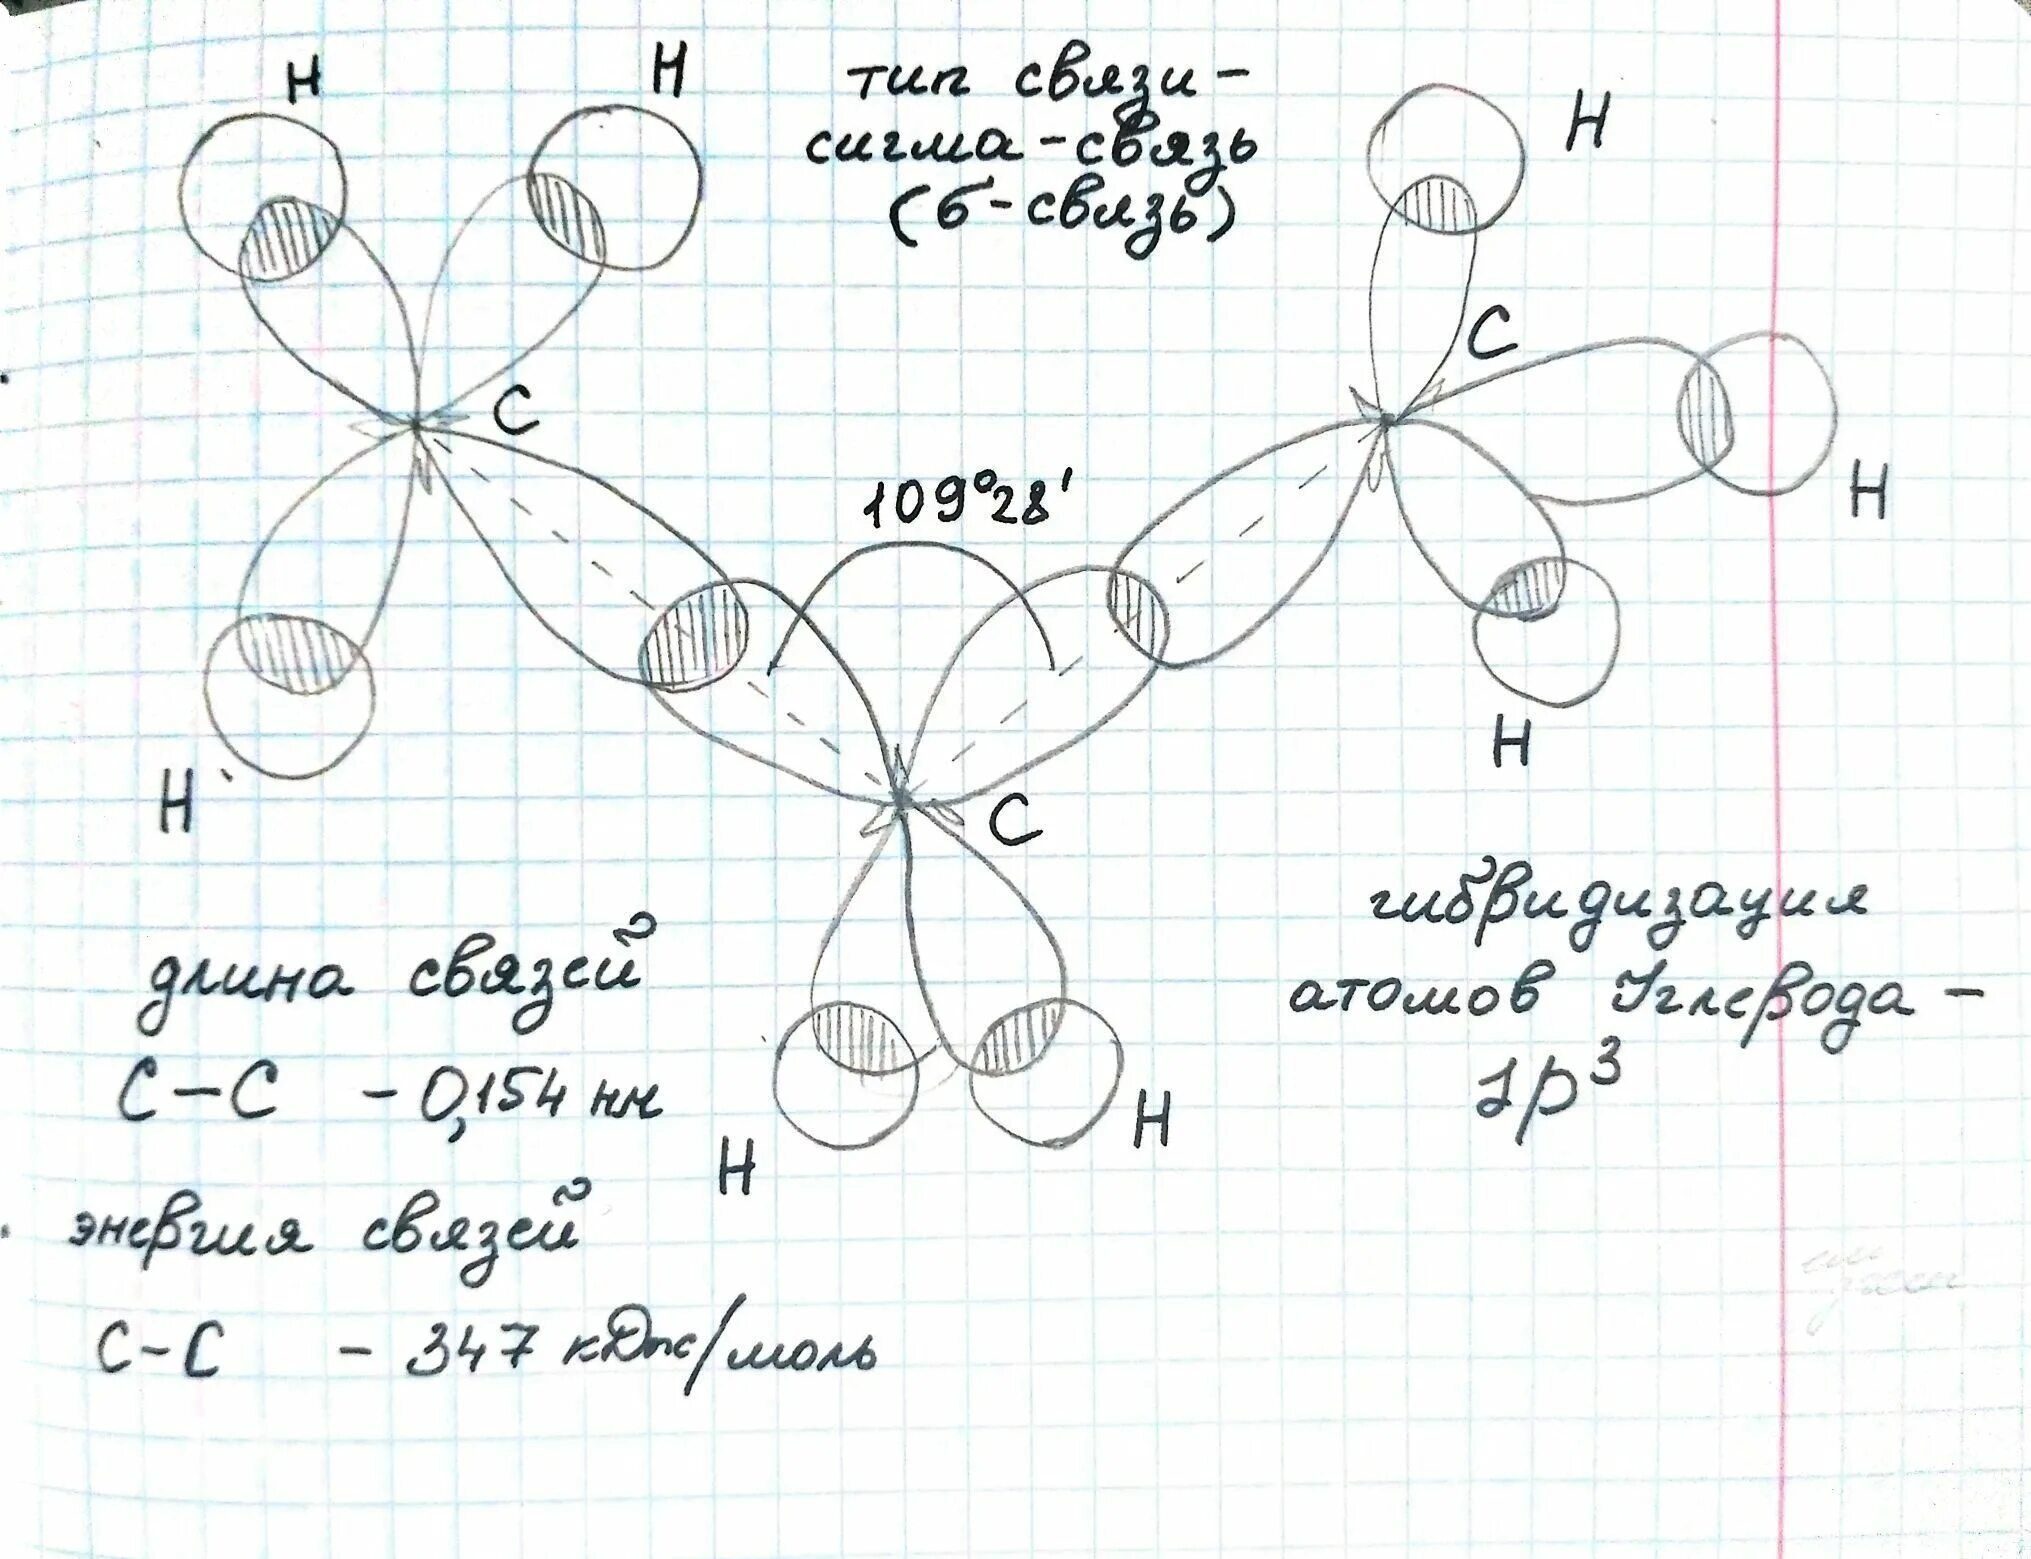 H
H
тип связи -
сигма - связь
(б - связь)
H
C
C
H
109°28'
H
H
C
гибридизация
атомов Углерода -
sp³
длина связей
C - C - 0,154 нм
H
H
энергия связей
C - C - 347 кДж/моль